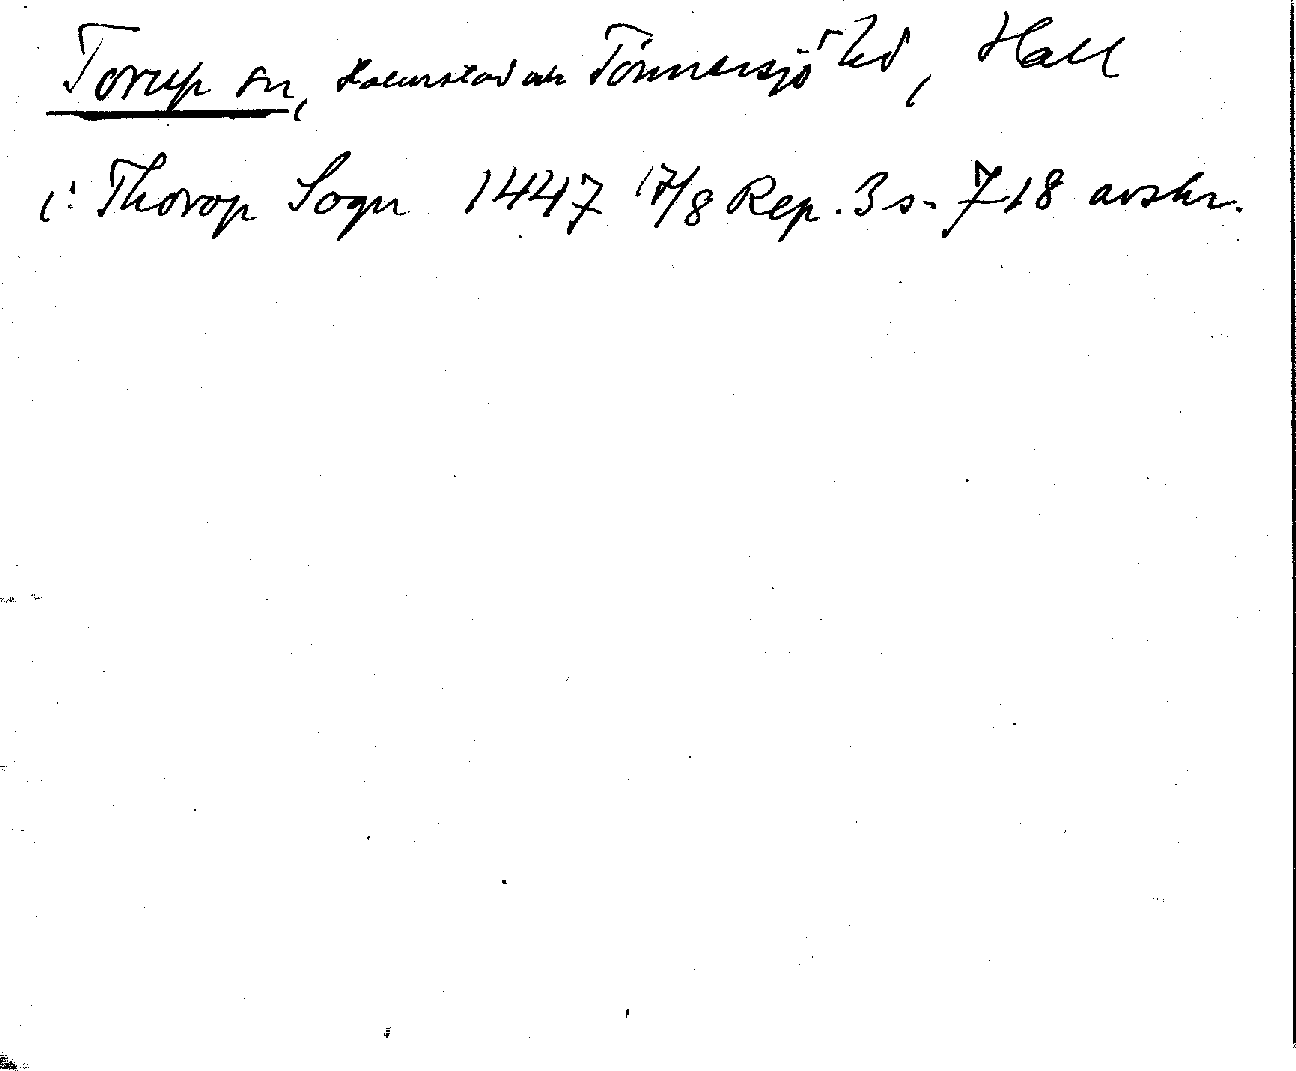 Torup sn, Halmstad och Tönnersjö hd, Hall
i: Thorop Sogn 1447 17/8 Rep. 3 s. 718 avskr.